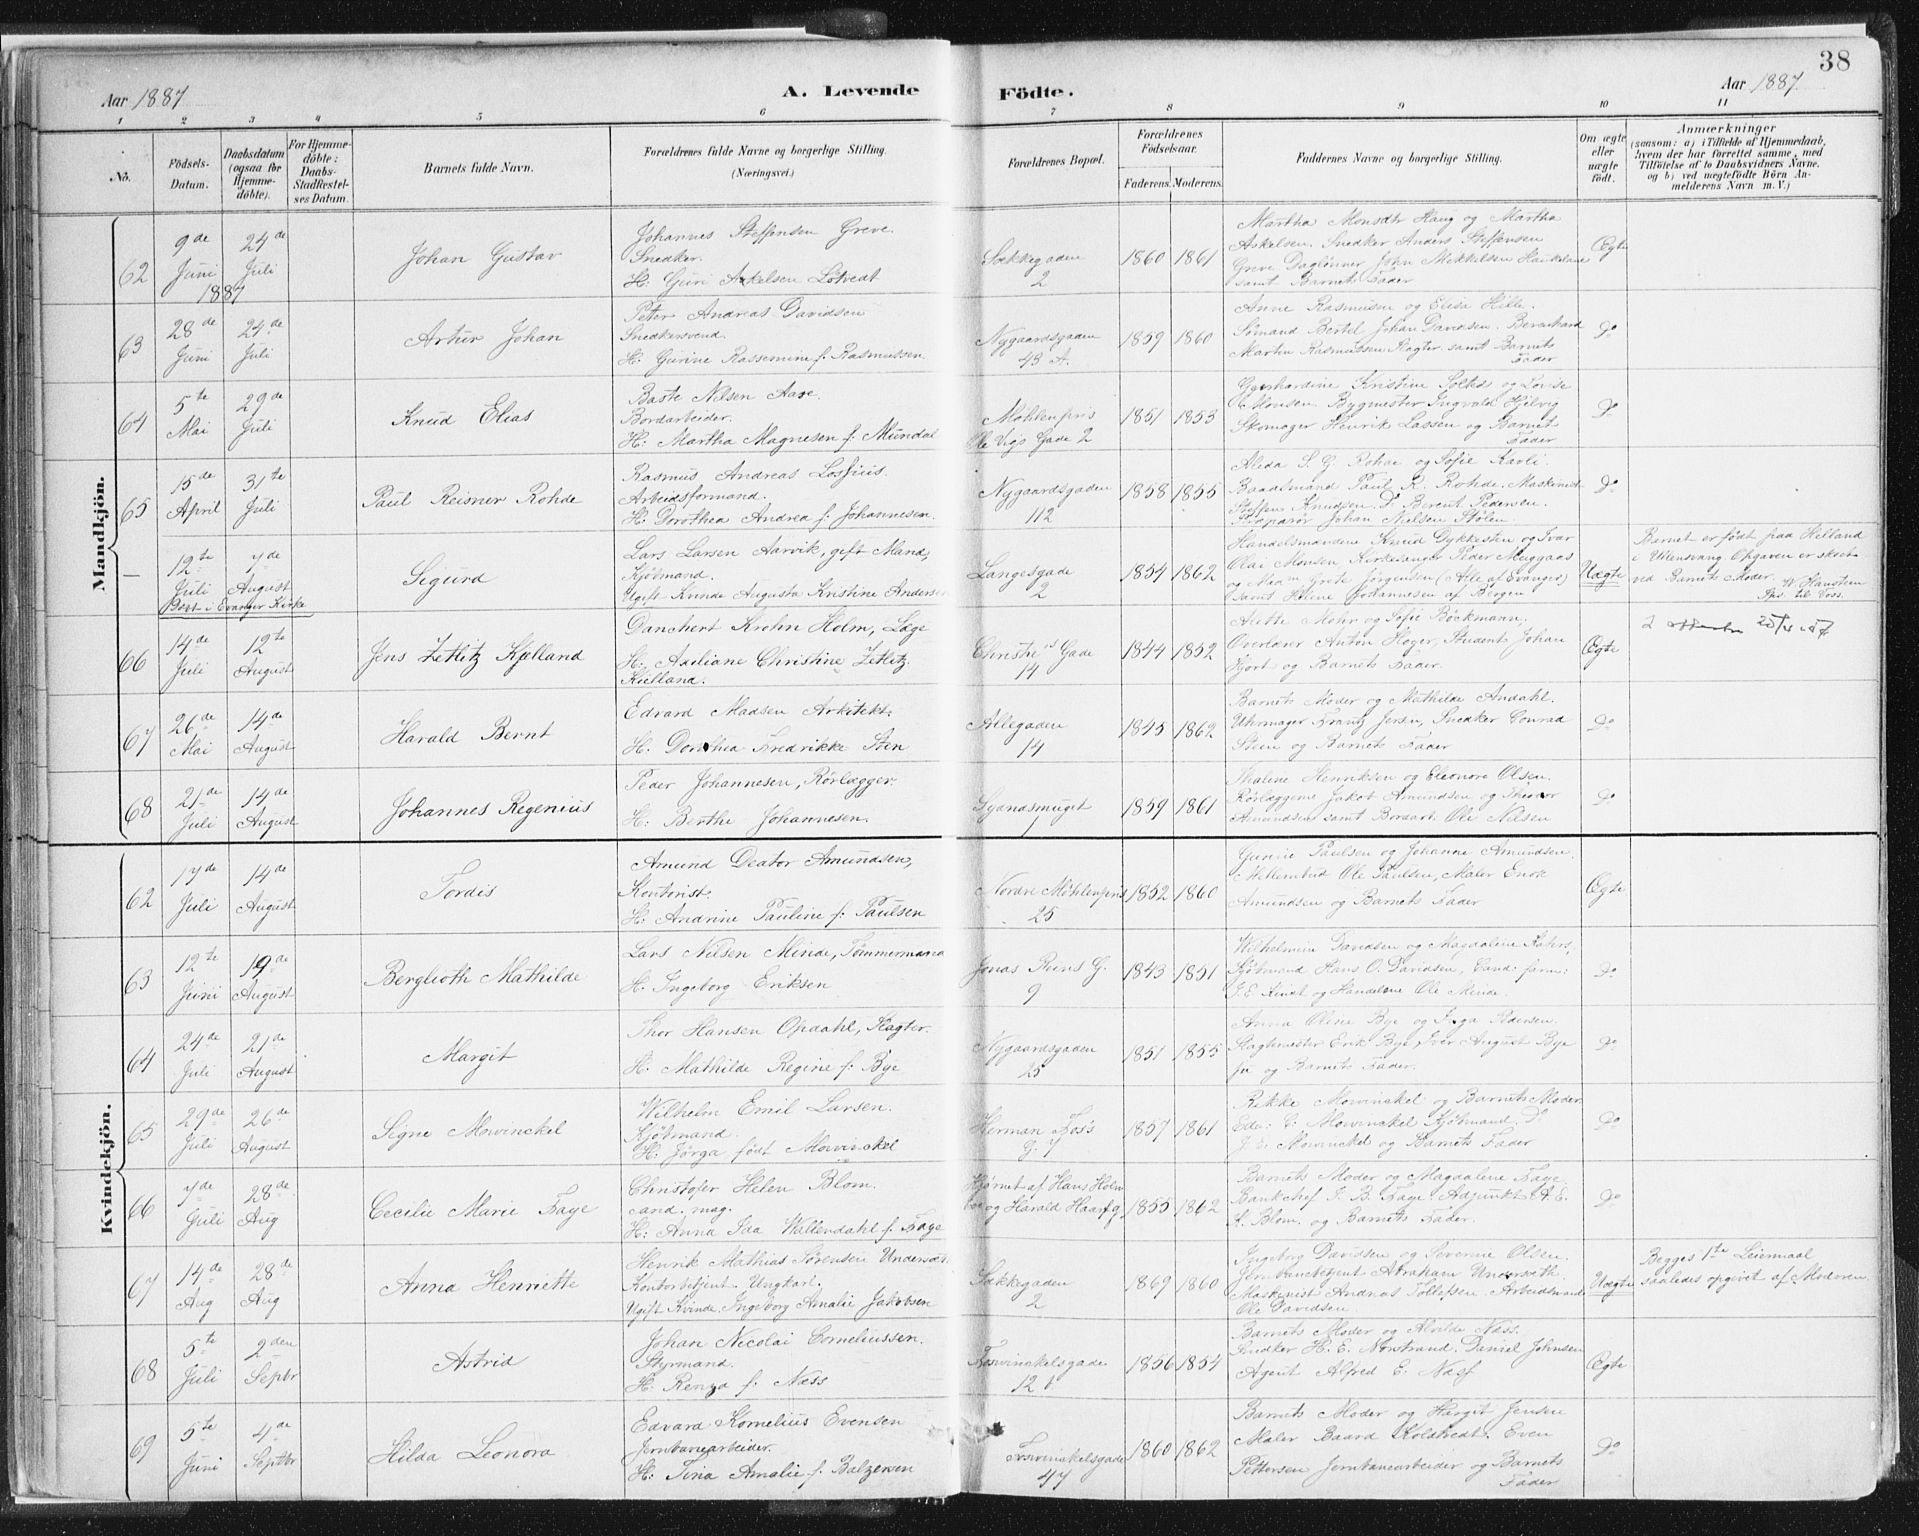 38
Aar 1887
A. Levende Födte.
Aar 1887.
1 2 3 4 5 6 7 8 9 10 11
No.
Födsels-Datum.
Daabsdatum (ogsaa for Hjemmedöbte).
For Hjemmedöbte: Daabs-Stadfestelses Datum.
Barnets fulde Navn.
Forældrenes fulde Navne og borgerlige Stilling.
(Næringsvei.)
Forældrenes Bopæl.
Forældrenes Födselsaar.
Faderens. Moderens.
Faddernes Navne og borgerlige Stilling.
Om ægte eller uægte födt.
Anmærkninger
(saasom: a) i Tilfælde af Hjemmedaab, hvem der har forrettet samme, med Tilföielse af to Daabsvidners Navne, og b) ved uægtefödte Börn Anmelderens Navn m. V.)
Mandkjön.
62
9de Juni 1887
24de Juli
Johan Gustav
Johannes Steffensen Greve.
Snedker.
H: Guri Askelsen Lötvedt
Sækkegaden
2
1860 1861
Martha Monsdtr Haug og Martha
Askelsen. Snedker Anders Steffensen
Greve Daglönner John Mikkelsen Haukelane
samt Barnets Fader
Ægte
63
28de Juni
24de Juli
Artur Johan
Peter Andreas Davidsen
Snedkersvend.
H: Gurine Rassemine f. Rasmussen
Nygaardsgaden
43 A.
1859 1860
Anne Rasmusen og Elisa Hille.
Sömand Bertel Johan Davidsen. Berenhard
Martin Rasmussen Slagter samt Barnets
Fader
Do
64
5te Mai
29de Juli
Knud Elias
Baste Nilsen Aase.
Bordarbeider.
H: Martha Magnesen f: Mundal
Möhlenpris
Ole Vigs Gade 2
1851 1853
Kristine Soltes og Lovise
Monsen. Bygmester Ingvald Hjelvig
Skomager Henrik Lassen og Barnets
Fader
Do
65
15de April
31te Juli
Paul Reisner Rohde
Rasmus Andreas Lossius
Arbeidsformand.
H: Dorothea Andrea f: Johannesen.
Nygaardsgaden
112
1858 1855
Alida S. G. Rohde og Sofie Kavli.
Baadsmand Paul R. Rohde, Maskinist
Steffen Knudsen. Do Berent Pedersen.
Johan Nielsen Stölen
Do
—
12te Juli
7de August
Döbt i Evanger Kirke
Sigurd
Lars Larsen Aarvik, gift Mand,
Kjöbmand.
Ugift Kvinde Augusta Kristine Andersen
Langesgade
2
1854 1862
Handelsmændene Knud Dykkesten og Ivar
Olai Monsen Kirkesanger Peder Muggaas
og Mdm Grete Jörgensen (Alle af Evanger)
samt Helene Johannesen af Bergen
Uægte
Barnet er födt paa Helland
i Ullensvang Opgaven er skeet
ved Barnets Moder.
til Voss.
66
14de Juli
12te August
Jens Zetlitz Kjelland
Danchert Krohn Holm, Læge
H: Axeliane Christine Zetlitz
Kielland.
Christies Gade
14
1844 1852
Alette Mohr og Sofie Böckmann,
Overlærer Anton Hoyer, Student Johan
Hjort og Barnets Fader.
Ægte
67
26de Mai
14de August
Harald Bernt
Edvard Madsen Arkitekt.
H: Dorothea Fredrikke Sten
Allegaden
14
1845 1862
Barnets Moder og Mathilde Andahl.
Uhrmager Frantz Jersin, Snedker Conrad
Steen og Barnets Fader
Do
68
21de Juli
14de August
Johannes Regenius
Peder Johannesen, Rörlægger.
H: Berthe Johannesen.
Sydnæsmuget
1
1859 1861
Thaline Henriksen og Eleonore Olsen.
Rörlæggerne Jakob Amundsen og Theodor
Amundsen samt Bordarb. Ole Nilsen
Do
Kvindekjön.
62
17de Juli
14de August
Tordis
Amund Deator Amundsen,
Kontorist.
H: Andrine Pauline f: Paulsen
Nordre Möhlenpris
25
1852 1860
Gurine Paulsen og Johanne Amundsen.
Mellembud Ole Paulsen, Maler Enok
Amundsen og Barnets Fader
Ægte
63
12te Juni
19de August
Berglioth Mathilde
Lars Nilsen Minde, Tömmermand
H: Ingeborg Eriksen
Jonas Reins G.
9
1843 1851
Wilhelmin Davidsen og Magdalene Kahrs,
Kjöbmand Hans O. Davidsen, Cand: farm:
J. E. Knut og Handelsme Ole Minde.
Do
64
24de Juli
21de August
Margit
Thor Hansen Opdahl, Slagter.
H: Mathilde Regine f: Bye
Nygaardsgaden
25
1851 1855
Anna Oline Bye og Inga Pedersen.
Slagtmester Erik Bye, Iver August Bye
og Barnets Fader.
Do
65
29de Juli
26de August
Signe Mowinckel
Wilhelm Emil Larsen.
Kjöbmand.
H: Jörga født Mowinckel
Herman Foss's
G. 7
1857 1861
Rikke Mowinckel og Barnets Moder
Ede: E: Mowinckel Kjöbmand, Do
J. E. Mowinckel og Barnets Fader
Do
66
7de Juli
28de Aug
Cecilie Marie Faye
Christofer Helen Blom.
cand. mag.
H: Anna Ida Wallendahl f. Faye
Hjörnet af Hans Holm
boe og Harald Haarfg.
1855 1862
Barnets Moder og Magdalene Faye.
Bankchef J. B. Faye. Adjunkt A. E.
S. Blom. og Barnets Fader.
Do
67
14de Aug
28de Aug
Anna Henriette
Henrik Mathias Sörensen Undersæth
Kontorbetjent Ungkarl.
Ugift Kvinde, Ingeborg Amalie Jakobsen
Sækkegaden
2
1869 1860
Ingeborg Davidsen og Severine Olsen.
Jernbanebetjent Abraham Undersæth.
Maskinist Andreas Tollefsen. Arbeidsmand
Ole Davidsen.
Uægte
Begges 1te Leiermaal
saaledes opgivet af Moderen.
68
5te Juli
2den Septbr
Astrid
Johan Nicolai Corneliussen.
Styrmand.
H: Renza f: Næss
Fosvinckelsgade
12 b
1856 1854
Barnets Moder og Alvilde Næss.
Snedker H. E. Norstrand. Daniel Johnsen
Agent Alfred E. Næss
Ægte
69
5te Juni
4de Septbr
Hilda Leonora
Edvard Kornelius Evensen
Jernbanearbeider.
H: Sina Amalie f. Balzersen
Fosvinckelsgade
47
1860 1862
Barnets Moder og Hargit Jensen
Maler Baard Kolstvedt. Even
Pettersen Jernbanearbeider og Barnets
Fader
Do